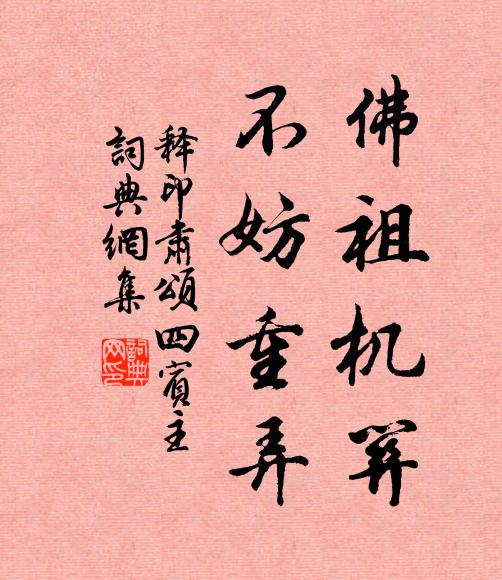 佛祖机关
不妨重弄
释印肃颂四宾主
詞典網集
詞典网印